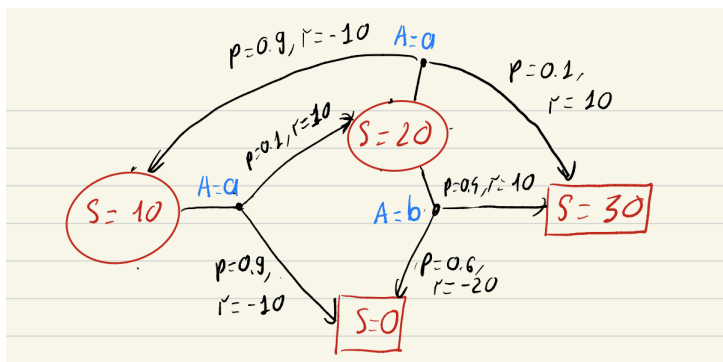 p=0.9, r=-10
A=a
p=0.1,
r=10
p=0.1, r=10
S=20
A=a
S=10
p=0.4, r=10
A=b
S=30
p=0.9,
r=-10
p=0.6,
r=-20
S=0